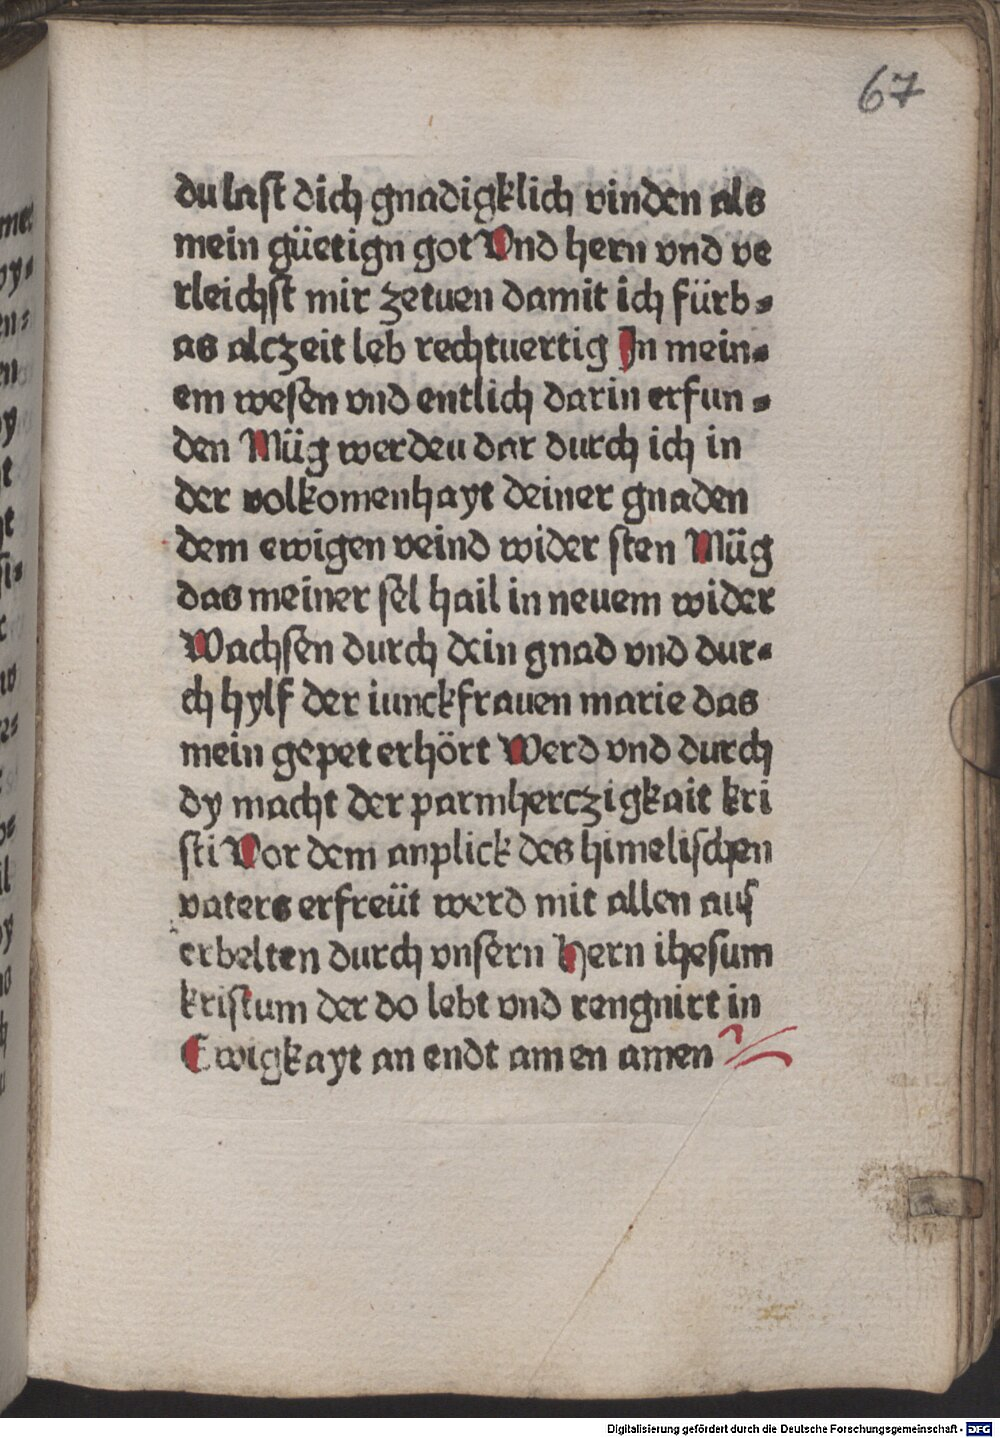 67
du last dich gnadigklich vinden als
mein güetign got Vnd hern vnd ve
rleichst mir zetuen damit ich fürb=
as alczeit leb rechtuertig In mein=
em wesen vnd entlich darin erfun=
den Müg werden dar durch ich in
der volkomenhayt deiner gnaden
dem ewigen veind wider sten Müg
das meiner sel hail in neuem wider
Wachsen durch dein gnad vnd dur=
ch hylf der iunckfrauen marie das
mein gepet erhört Werd vnd durch
dy macht der parmherczigkait kri
sti Vor dem anplick des himelischen
vaters erfreüt werd mit allen aus
erbelten durch vnsern Hern ihesum
kristum der do lebt vnd rengnirt in
Ewigkayt an endt amen amen
Digitalisierung gefördert durch die Deutsche Forschungsgemeinschaft - DFG